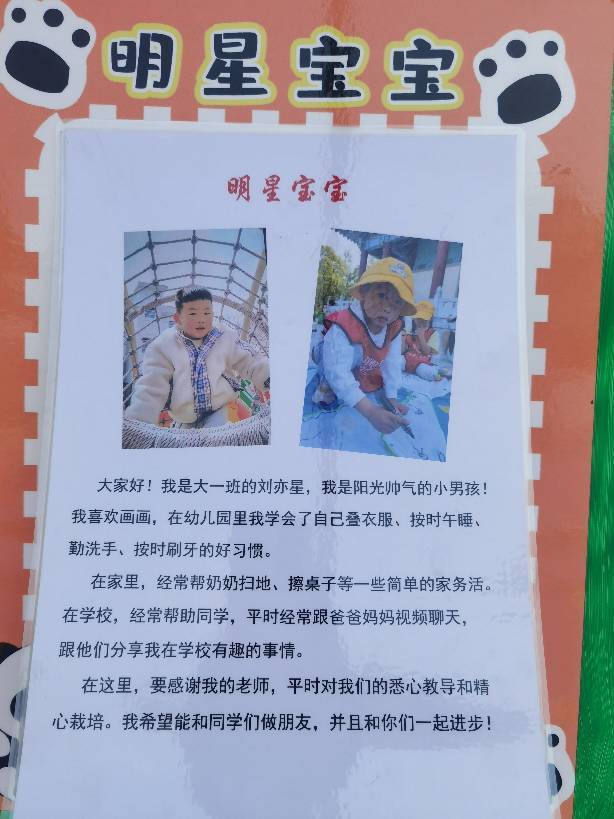 明星宝宝
明星宝宝
大家好！我是大一班的刘亦星，我是阳光帅气的小男孩！
我喜欢画画，在幼儿园里我学会了自己叠衣服、按时午睡、
勤洗手、按时刷牙的好习惯。
在家里，经常帮奶奶扫地、擦桌子等一些简单的家务活。
在学校，经常帮助同学，平时经常跟爸爸妈妈视频聊天，
跟他们分享我在学校有趣的事情。
在这里，要感谢我的老师，平时对我们的悉心教导和精
心栽培。我希望能和同学们做朋友，并且和你们一起进步！